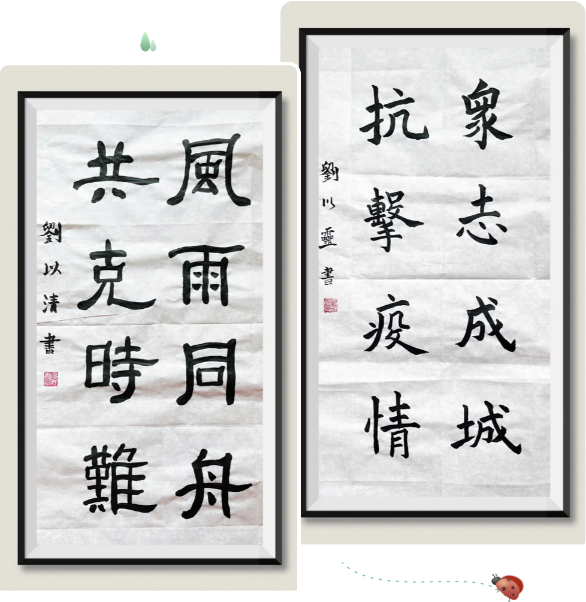 風雨同舟
共克時難
劉以清書
眾志成城
抗擊疫情
劉以靈書